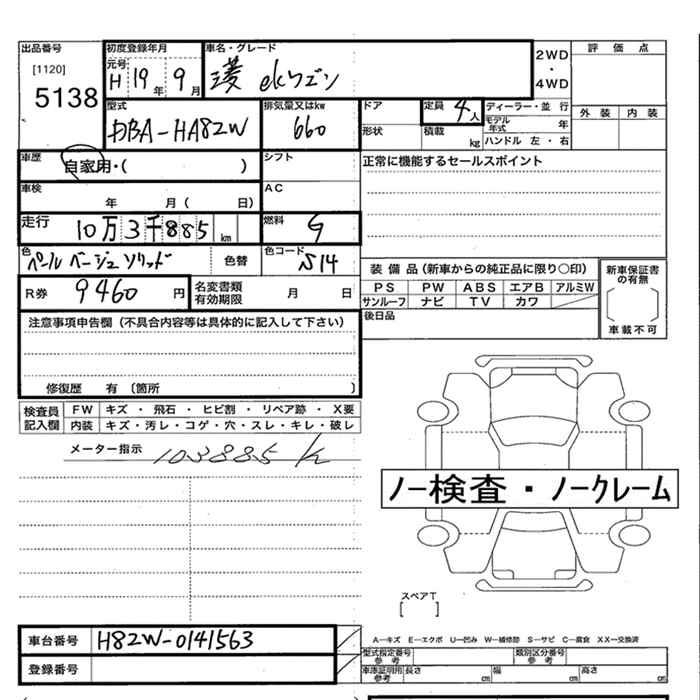 出品番号 初度登録年月 車名・グレード 2WD・4WD 評価点
[1120] 元号
5138 H 19年 9月 三菱 ekワゴン
外装 内装
型式 排気量又はkw ドア 定員 4人 ディーラー・並行
DBA-HA82W 660 形状 積載 kg モデル年式 年
ハンドル 左・右
車歴 自家用・( ) シフト 正常に機能するセールスポイント
車検 年 月( 日) AC
走行 10万3千885km 燃料 G
色 ペールベージュソリッド 色替 色コード S14
装備品(新車からの純正品に限り○印) 新車保証書の有無
R券 9460円 名変書類有効期限 月 日 PS PW ABS エアB アルミW
サンルーフ ナビ TV カワ
注意事項申告欄(不具合内容等は具体的に記入して下さい) 後日品 車載不可
修復歴 有 〔箇所 〕
検査員記入欄 FW キズ・飛石・ヒビ割・リペア跡・X要
内装 キズ・汚レ・コゲ・穴・スレ・キレ・破レ
メーター指示 103885 k
ノー検査・ノークレーム
スペアT
[ ]
車台番号 H82W-0141563
登録番号
A―キズ E―エクボ U―凹み W―補修跡 S―サビ C―腐食 XX―交換済
型式指定番号 参考 類別区分番号 参考
車庫証明用 参考 長さ cm 幅 cm 高さ cm